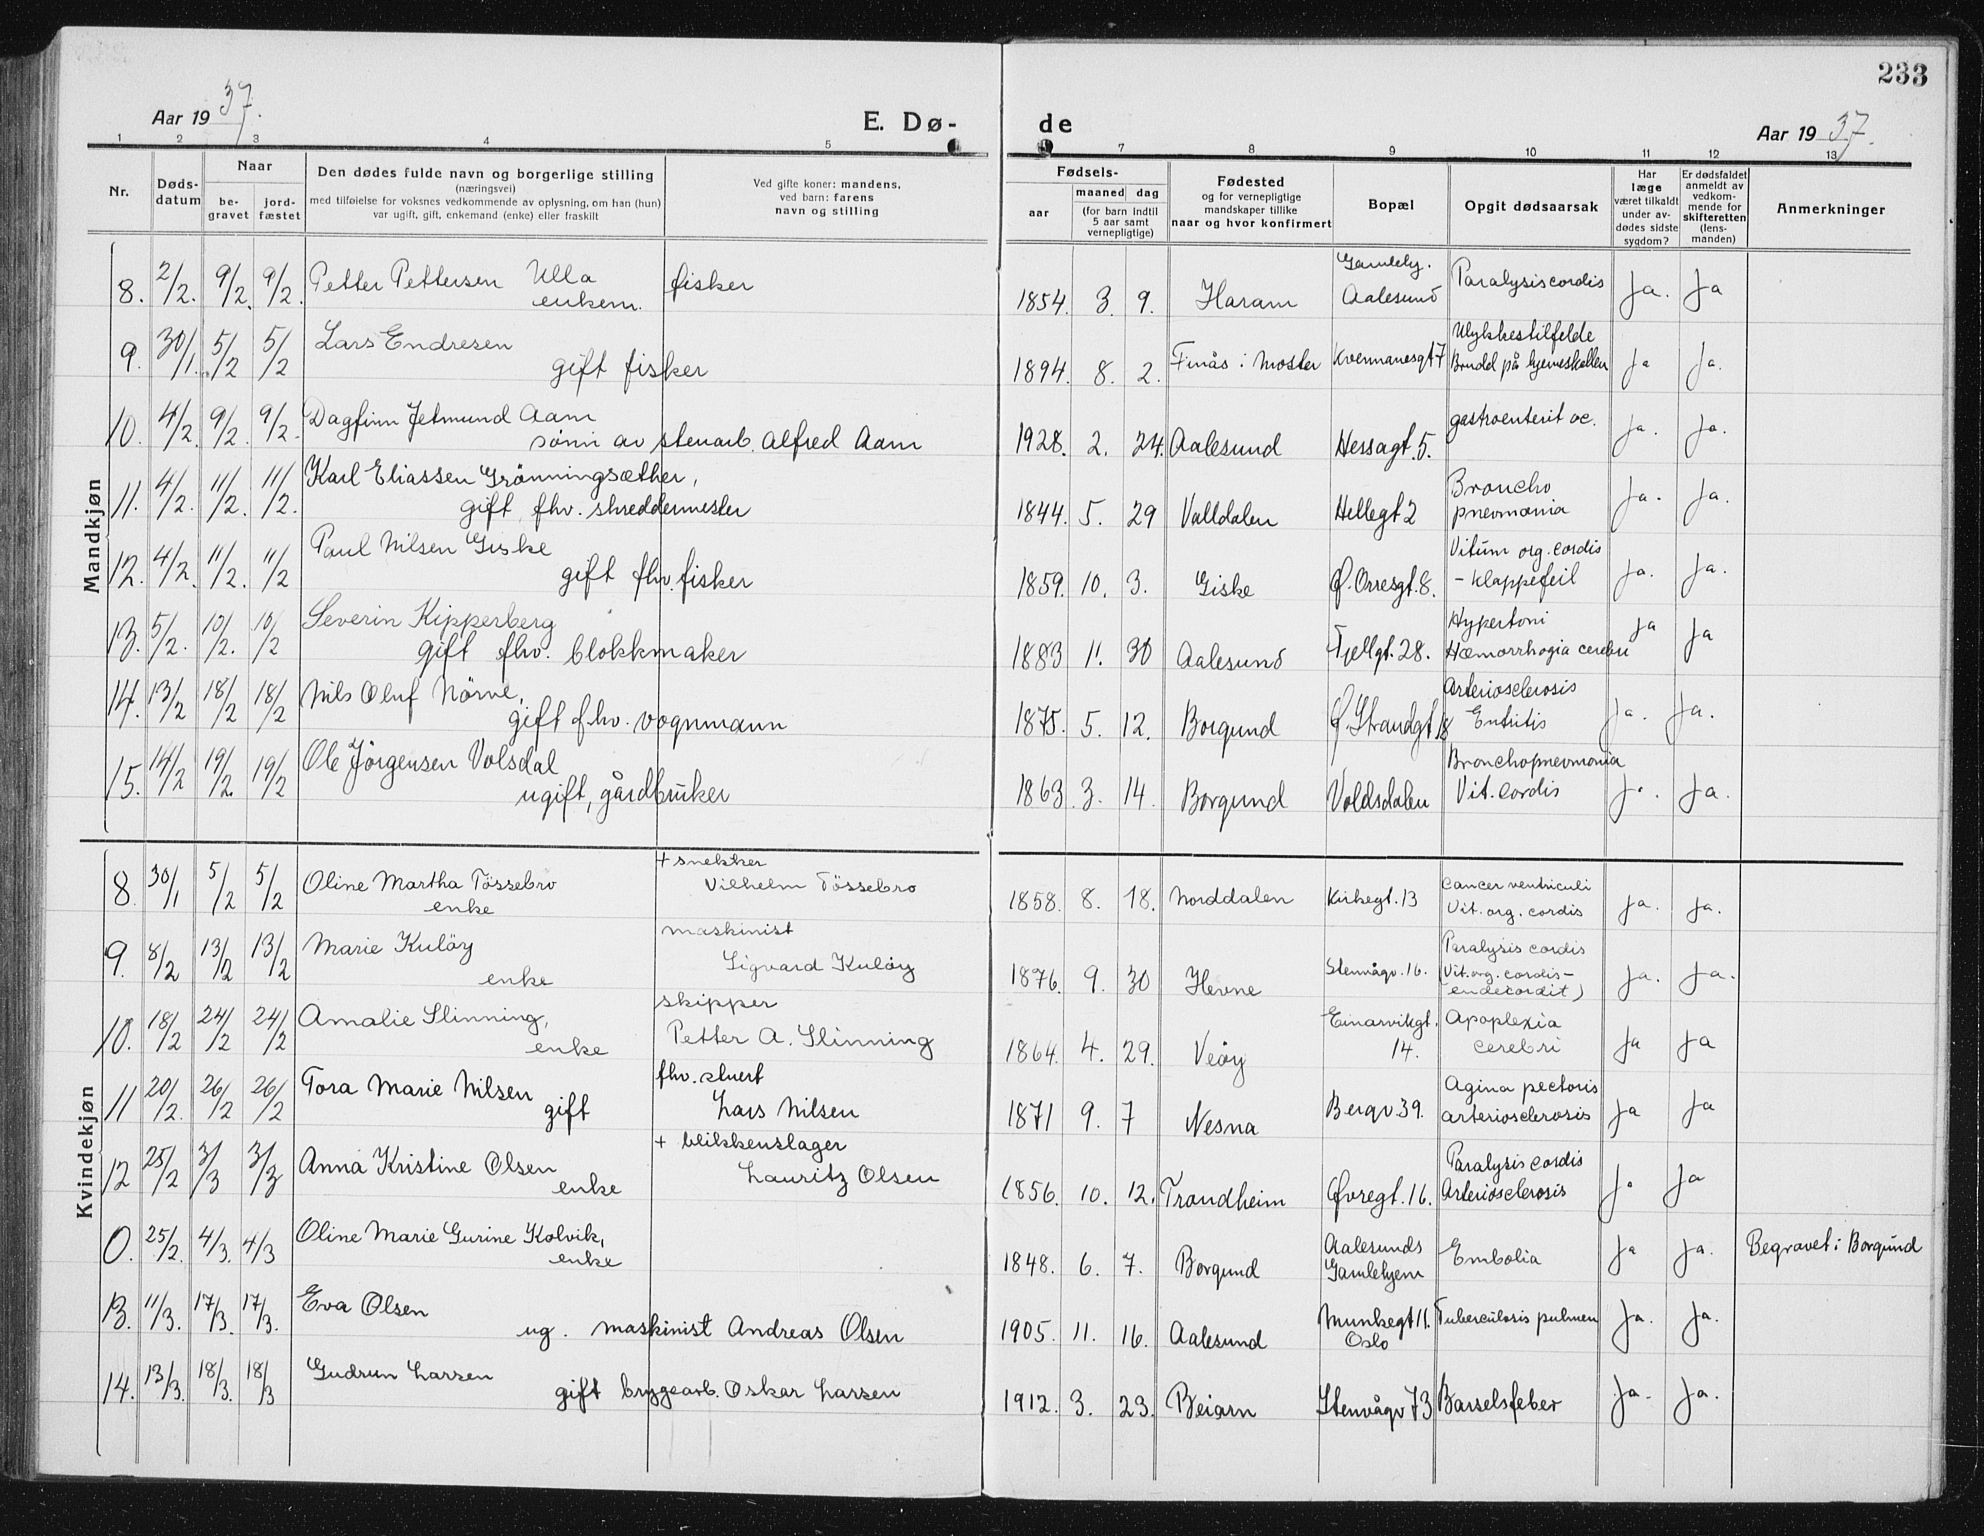 233
Aar 1937.
E. Dø-
de
Aar 1937.
1 2 3 4 5 7 8 9 10 11 12 13
Nr.
Døds-
datum
Naar
be-
gravet
jord-
fæstet
Den dødes fulde navn og borgerlige stilling
(næringsvei)
med tilføielse for voksnes vedkommende av oplysning, om han (hun)
var ugift, gift, enkemand (enke) eller fraskilt
Ved gifte koner: mandens,
ved barn: farens
navn og stilling
Fødsels-
aar
maaned dag
(for barn indtil
5 aar samt
vernepligtige)
Fødested
og for vernepligtige
mandskaper tillike
naar og hvor konfirmert
Bopæl
Opgit dødsaarsak
Har
læge
været tilkaldt
under av-
dødes sidste
sygdom?
Er dødsfaldet
anmeldt av
vedkom-
mende for
skifteretten
(lens-
manden)
Anmerkninger
Mandkjøn
8. 2/2. 9/2. 9/2. Petter Pettersen Ulla
enkem. fisker
1854. 3. 9. Haram Gamlehj.
Aalesund Paralysis cordis Ja. Ja
9. 30/1. 5/2 5/2 Lars Endresen
gift fisker
1894. 8. 2. Finås i Moster Kvennanesgt 7 Ulykkestilfelde
Brudd på hjerneskallen Ja Ja.
10. 4/2. 9/2. 9/2. Dagfinn Jetmund Aam
sønn av stenarb. Alfred Aam
1928. 2. 24. Aalesund Hessagt. 5. gastroenterit ac. Ja. Ja.
11. 4/2. 11/2. 11/2. Karl Eliassen Grönningsæther,
gift fhv. skreddermester
1844. 5. 29 Valldalen Hellegt 2 Broncho
pneumonia Ja. Ja.
12. 4/2. 11/2. 11/2 Paul Nilsen Giske
gift fhv. fisker
1859. 10. 3. Giske Ø. Orresgt. 8. Vitum org. cordis
- Klappefeil Ja. Ja.
13. 5/2. 10/2. 10/2 Severin Kipperberg
gift fhv. blokkmaker
1883 11. 30 Aalesund Fjellgt. 28. Hypertoni
Hæmorrhogia cerebri Ja Ja
14. 13/2 18/2 18/2 Nils Oluf Nörve,
gift fhv. vognmann
1875. 5. 12. Borgund Ø. Strandgt. 18 Arteriosclerosis
Entritis Ja. Ja.
15. 14/2 19/2. 19/2 Ole Jörgensen Volsdal
ugift, gårdbruker
1863. 3. 14. Borgund Voldsdalen Bronchopneumonia
Vit. cordis Ja. Ja.
Kvindekjøn
8 30/1 5/2 5/2 Oline Martha Tössebro
enke + snekker
Vilhelm Tössebro
1858. 8. 18. Norddalen Kirkegt. 13 Cancer ventriculi
Vit. org. cordis Ja. Ja.
9. 8/2 13/2 13/2 Marie Kulöy
enke maskinist
Sigvard Kulöy
1876. 9. 30 Hevne Stenvågv. 16. Paralysis cordis
(Vit. org. cordis-
endecordit) Ja. Ja.
10. 18/2 24/2 24/2 Amalie Slinning,
enke skipper
Petter A. Slinning
1864. 4. 29. Veöy Einarvikgt.
14. Apoplexia
cerebri Ja Ja
11 20/2. 26/2 26/2 Tora Marie Nilsen
gift fhv. stuert
Lars Nilsen
1871 9. 7 Nesna Bergv 39. Agina pectoris
arteriosclerosis Ja Ja
12 25/2 3/3 3/3 Anna Kristine Olsen
enke + blikkenslager
Lauritz Olsen
1856. 10. 12. Trondheim Øvregt. 16. Paralysis cordis
Arteriosclerosis Ja Ja
0. 25/2. 4/3. 4/3 Oline Marie Gurine Kolvik,
enke
1848. 6. 7. Borgund Aalesunds
Gamlehjem Embolia Ja Ja. Begravet i Borgund
13. 11/3. 17/3. 17/3. Eva Olsen
ug. maskinist Andreas Olsen
1905. 11. 16. Aalesund Munkegt 11.
Oslo Tuberculosis pulmen Ja. Ja.
14. 13/3. 18/3. 18/3 Gudrun Larsen
gift bryggearb. Oskar Larsen
1912. 3. 23. Beiarn Stenvågv 73 Barselsfeber Ja. Ja.